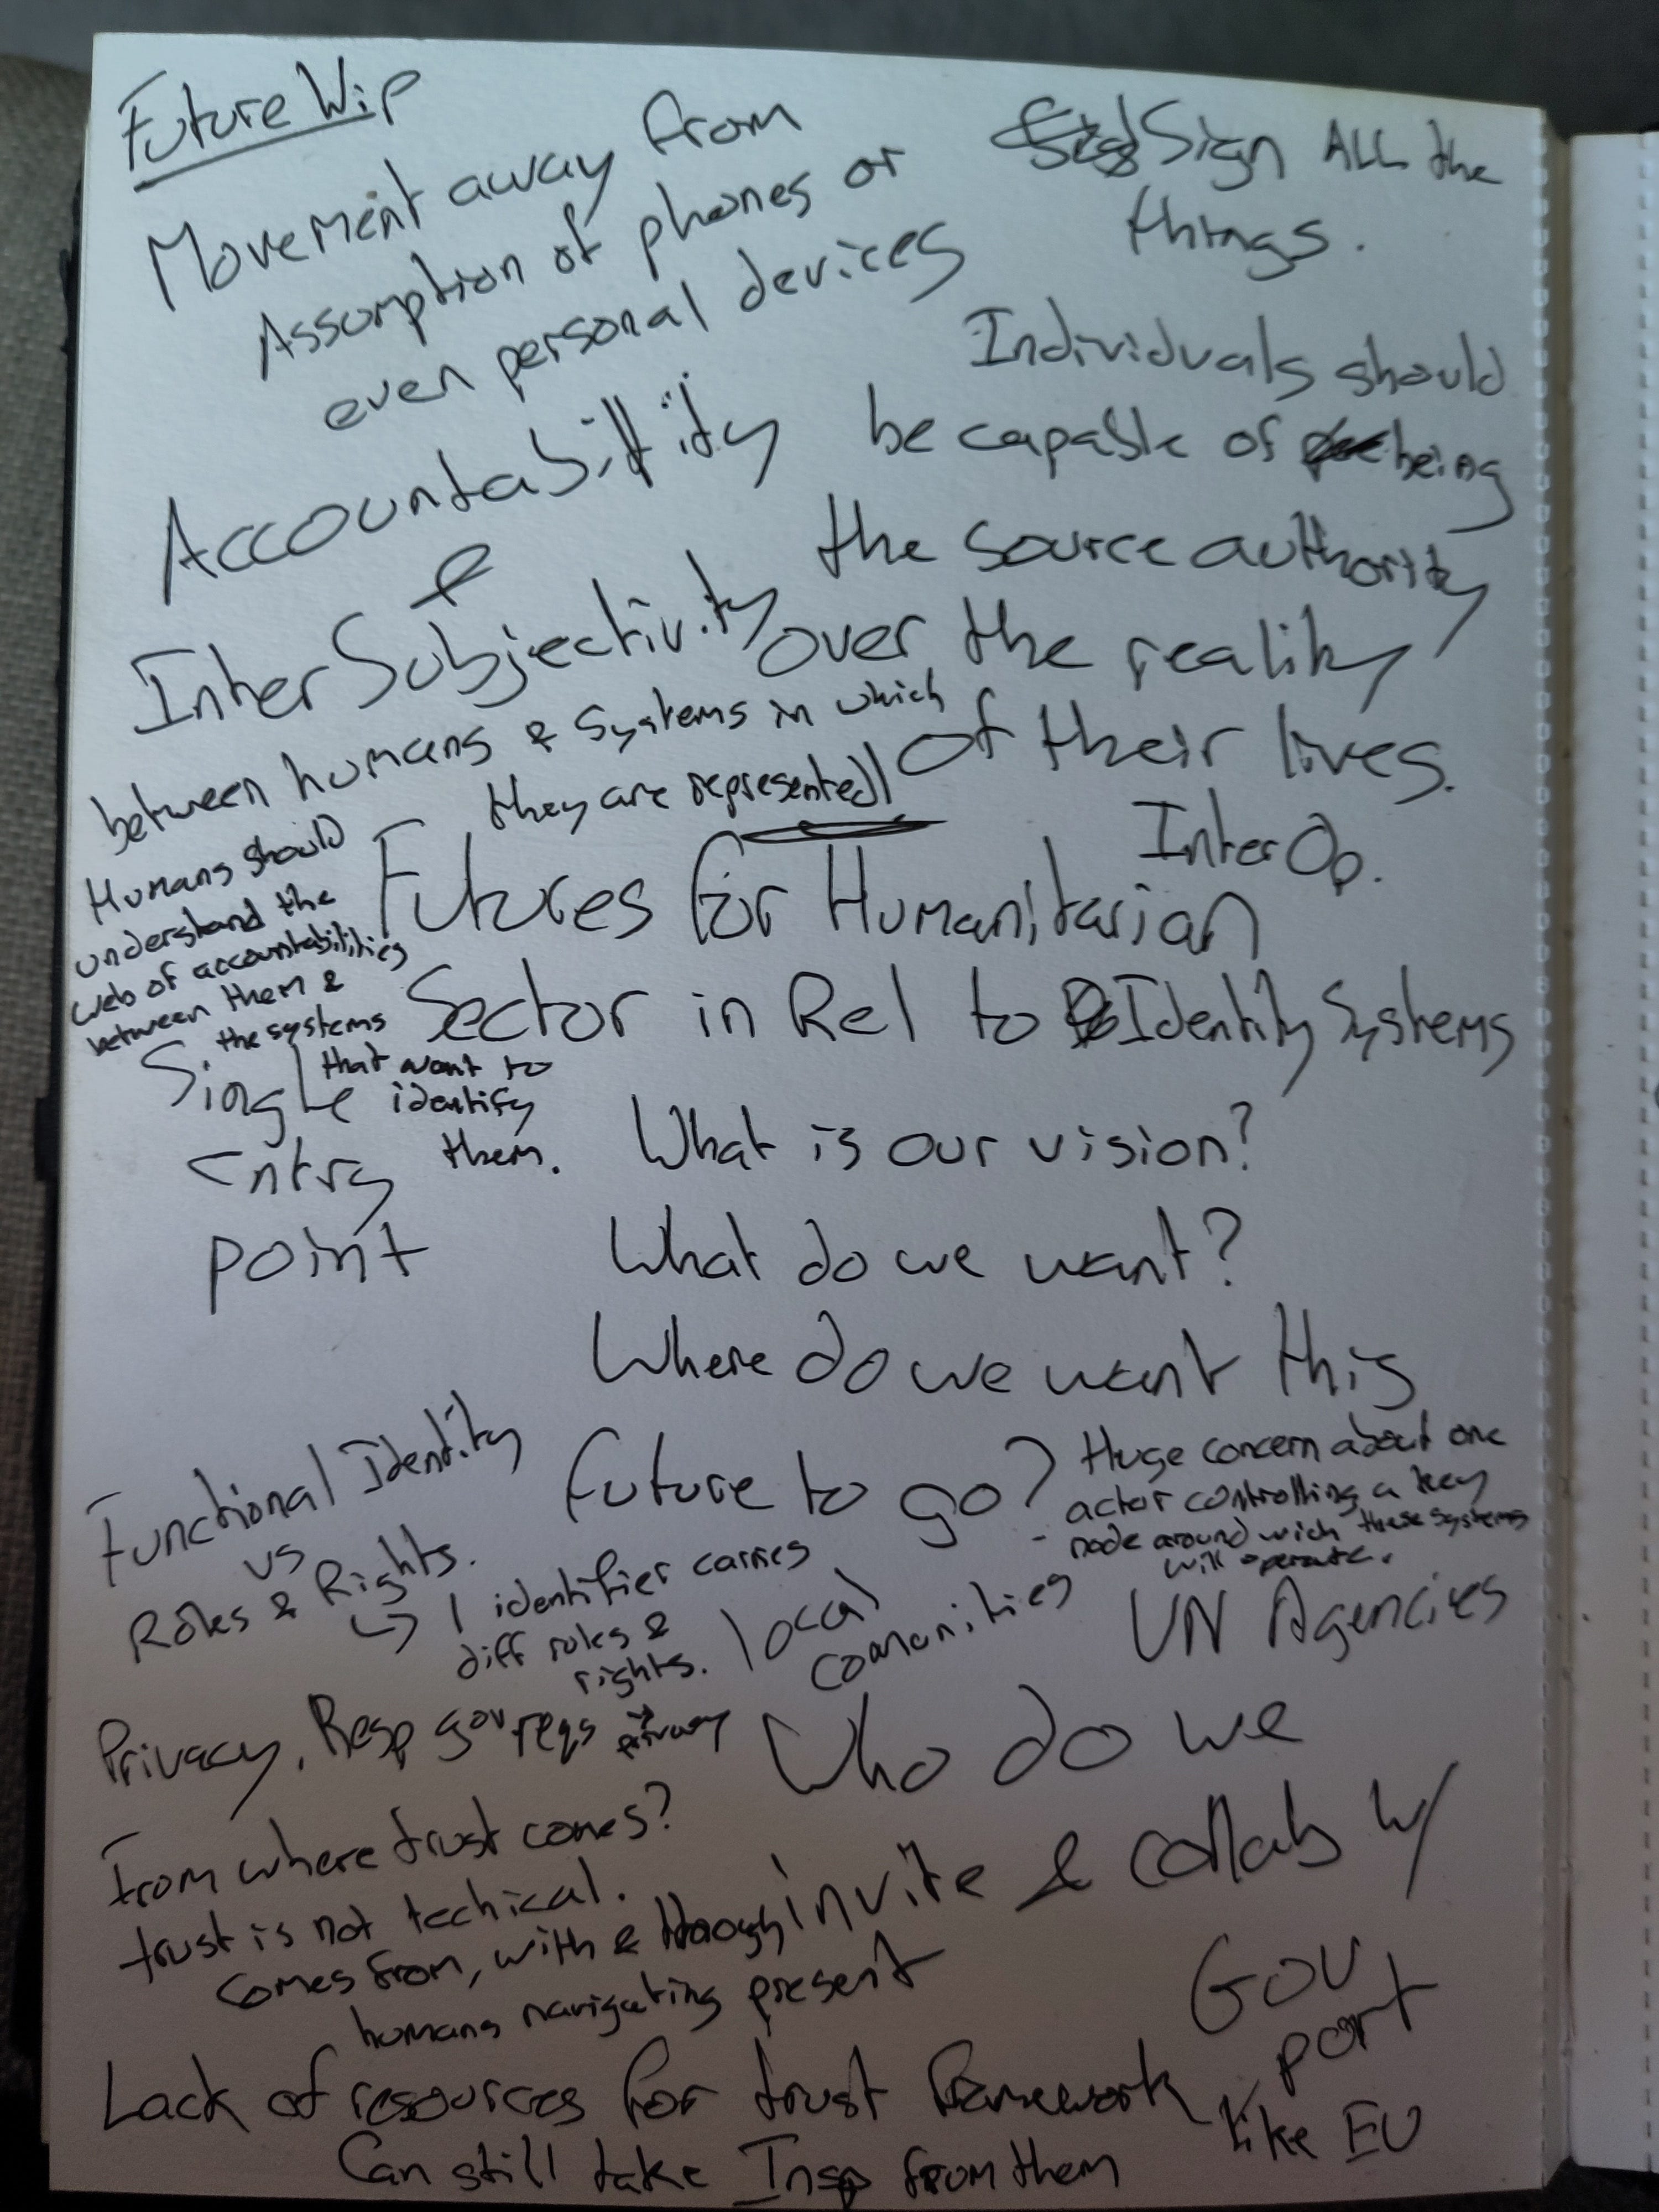 Future Wip
Movement away from
Assumption of phones or
even personal devices
Sign ALL the
things.
Accountability
&
InterSubjectivity
between humans & Systems in which
they are represented
Individuals should
be capable of being
the source authority
over the reality
of their lives.
InterOp.
Humans should
understand the
web of accountabilities
between them &
the systems
that want to
identify
them.
Futures for Humanitarian
Sector in Rel to Identity Systems
Single
Entry
point
What is our vision?
What do we want?
Where do we want this
future to go?
Huge concern about one
actor controlling a key
- node around wich these systems
will operate.
Functional Identity
vs
Roles & Rights.
↳ 1 identifier carries
diff roles &
rights.
local
communities
UN Agencies
Privacy, Resp gov reqs → privacy
Who do we
invite & collab w/
From where trust comes?
trust is not techical.
Comes from, with & though
humans navigating present
Gov
part
like EU
Lack of resources for trust framework
Can still take Insp from them